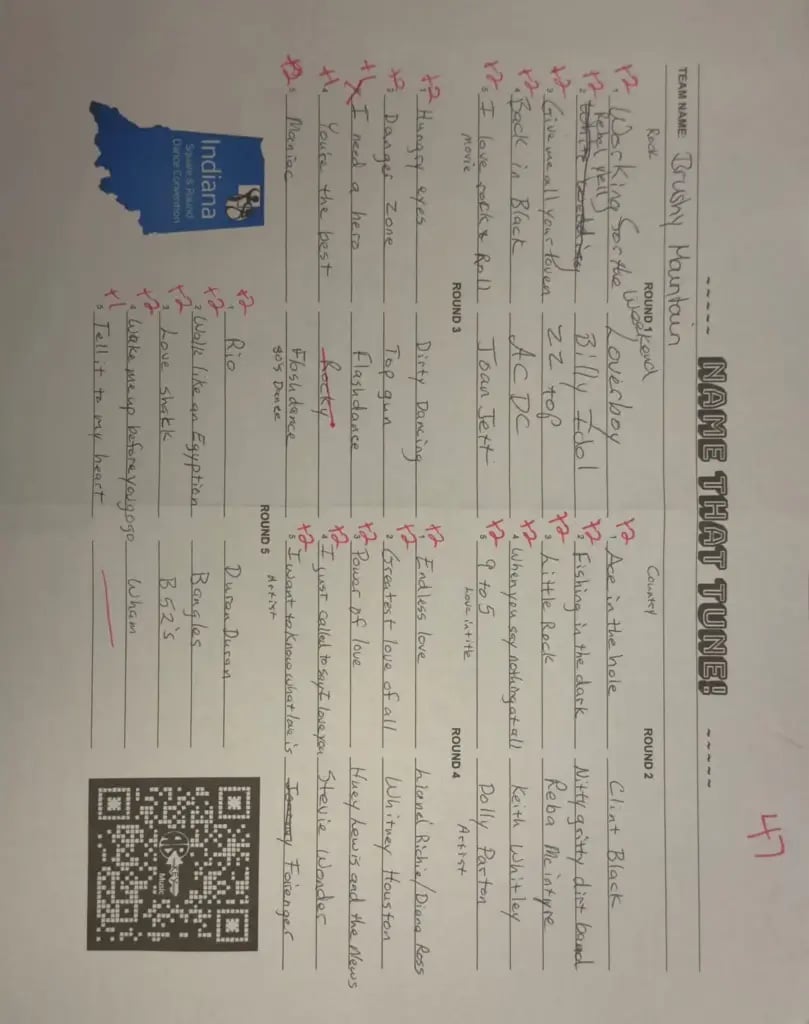 47
~~~~~ NAME THAT TUNE! ~~~~~
TEAM NAME: Brushy Mountain
Rock ROUND 1
+2 1. Working for the Weekend Loverboy
+2 2. Rebel Yell Billy Idol
+2 3. Give me all your loven ZZ top
+2 4. Back in Black AC DC
+2 5. I love rock & Roll Joan Jett
Country ROUND 2
+2 1. Ace in the hole Clint Black
+2 2. Fishing in the dark Nitty gritty dirt band
+2 3. Little Rock Reba Mcintyre
+2 4. When you say nothing at all Keith Whitley
+2 5. 9 to 5 Dolly Parton
Movie ROUND 3
+2 1. Hungry eyes Dirty Dancing
+2 2. Danger zone Top gun
+1 3. I need a hero Flashdance
+1 4. You're the best Rocky
+2 5. Maniac Flashdance
Love in title ROUND 4 Artist
+2 1. Endless love Lionel Richie/Diana Ross
+2 2. Greatest love of all Whitney Houston
+2 3. Power of love Huey Lewis and the News
+2 4. I just called to say I love you Stevie Wonder
+2 5. I want to know what love is Foirenger
80's Dance ROUND 5 Artist
+2 1. Rio Duran Duran
+2 2. Walk like an Egyption Bangles
+2 3. Love shakk B52's
+2 4. Wake me up before you gogo Wham
+1 5. Tell it to my heart
Indiana
Square & Round
Dance Convention
Music